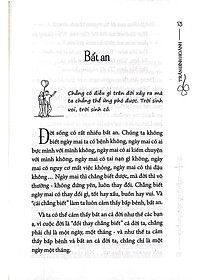 TRẦN ĐÌNH HOÀNH
Bất an
Chẳng có điều gì trên đời xảy ra mà
ta chẳng thể ứng phó được. Trời sinh
voi, trời sinh cỏ.
Đời sống có rất nhiều bất an. Chúng ta không
biết ngày mai ta có bệnh không, ngày mai có ai
bực mình với mình không, ngày mai có ai kiếm chuyện
với mình không, ngày mai có tai nạn gì không, ngày
mai có nguy cơ mất việc không, ngày mai có thi đậu
không... Ngày mai thì chẳng biết được, mà đời thì vô
thường - không đứng yên, luôn thay đổi. Chẳng biết
ngày mai có thay đổi gì, tốt hay xấu, buồn hay vui. Và
"cái chẳng biết" làm ta luôn cảm thấy bấp bênh, bất an.
Và ta có thể cảm thấy bất an cả đời như thế các bạn
ạ, vì cuộc đời là "đổi thay chẳng biết" cả đời ta, chẳng
phải chỉ là một ngày, một tháng - và như thế ta cảm
thấy bấp bênh và bất an cả đời ta, chẳng chỉ là một
ngày một tháng.